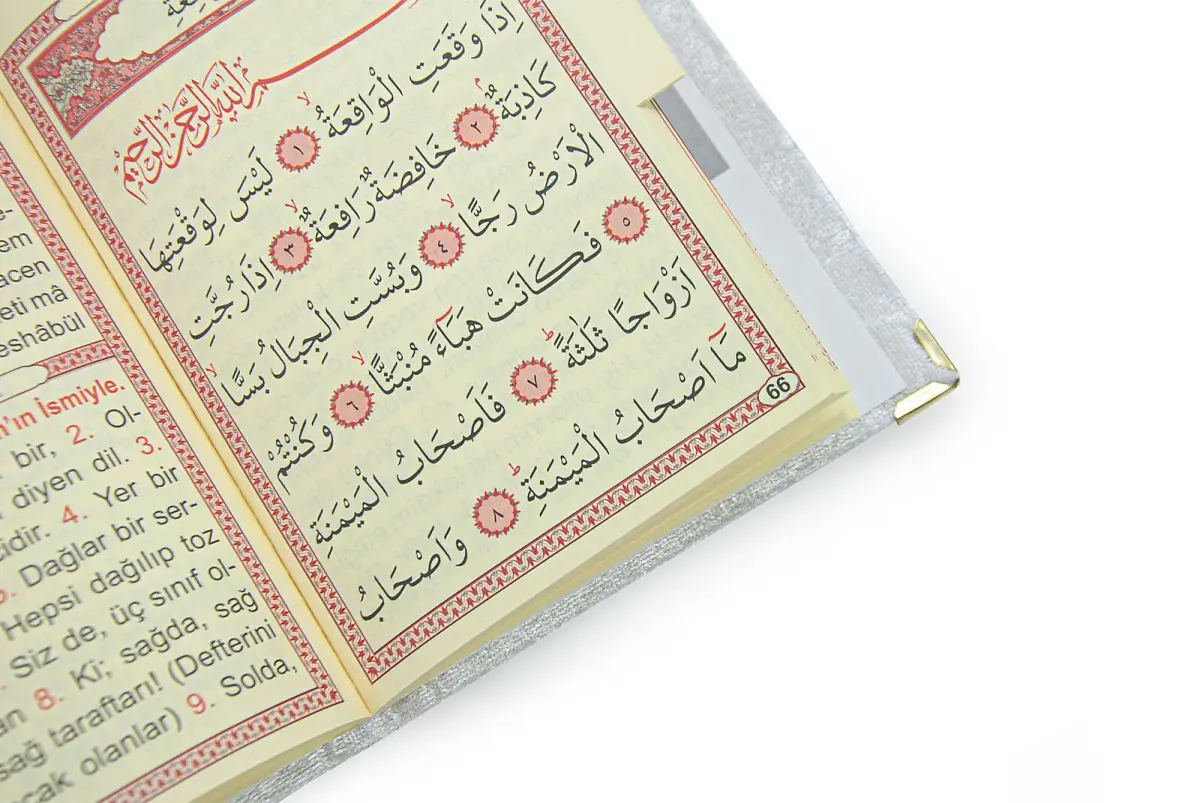 بِسْمِ اللّٰهِ الرَّحْمٰنِ الرَّحِيمِ
اِذَا وَقَعَتِ الْوَاقِعَةُ ١ لَيْسَ لِوَقْعَتِهَا
كَاذِبَةٌ ٢ خَافِضَةٌ رَافِعَةٌ ٣ اِذَا رُجَّتِ
الْاَرْضُ رَجًّا ٤ وَبُسَّتِ الْجِبَالُ بَسًّا
٥ فَكَانَتْ هَبَآءً مُنْبَثًّا ٦ وَكُنْتُمْ
اَزْوَاجًا ثَلٰثَةً ٧ فَاَصْحَابُ الْمَيْمَنَةِ
مَآ اَصْحَابُ الْمَيْمَنَةِ ٨ وَاَصْحَابُ
66
em
acen
eti mâ
eshâbül
n'ın İsmiyle.
bir, 2. Ol-
diyen dil. 3.
idir. 4. Yer bir
Dağlar bir ser-
Hepsi dağılıp toz
Siz de, üç sınıf ol-
an 8. Ki; sağda, sağ
sağ taraftarı! (Defterini
cak olanlar) 9. Solda,